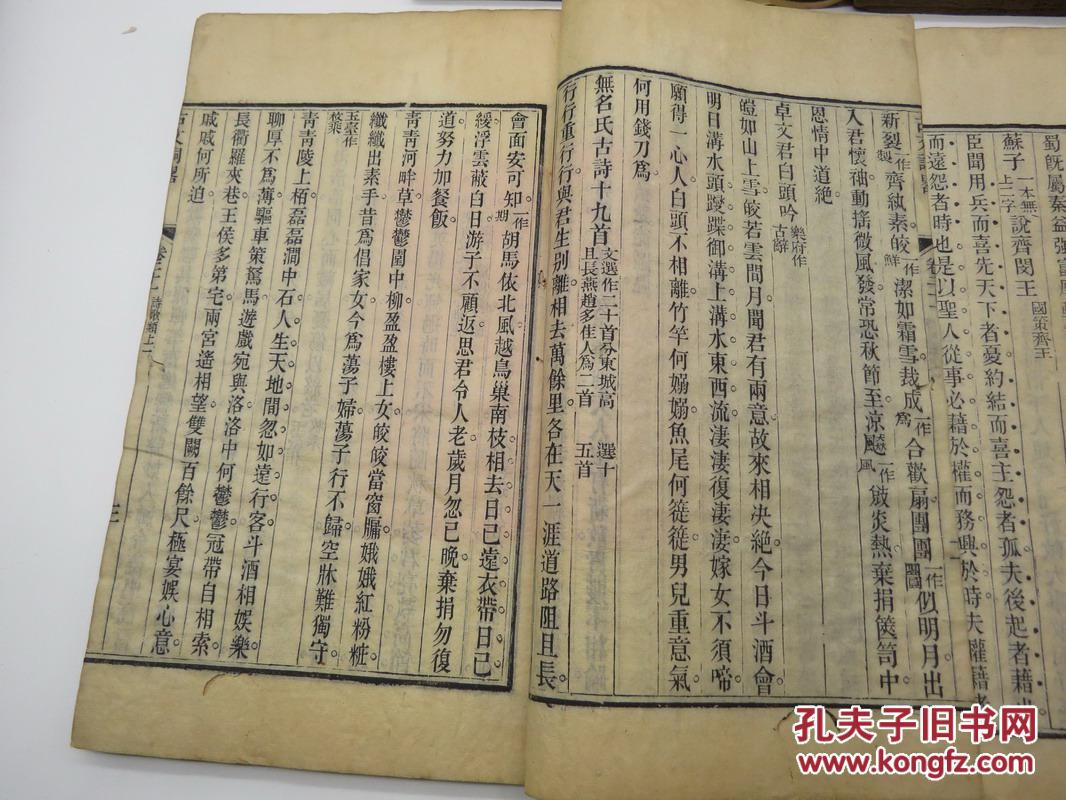 蜀既屬秦益強富厚
蘇子一本無上二字說齊閔王國策齊王
臣聞用兵而喜先天下者憂約結而喜主怨者孤夫後起者藉也
而遠怨者時也是以聖人從事必藉於權而務興於時夫權藉者
新裂一作製齊紈素皎一作鮮潔如霜雪裁成一作爲合歡扇團團一作團圓似明月出
入君懷袖動搖微風發常恐秋節至涼飈一作風敚炎熱棄捐篋笥中
恩情中道絶
卓文君白頭吟樂府作古辭
皚如山上雪皎若雲間月聞君有兩意故來相決絶今日斗酒會
明日溝水頭躞蹀御溝上溝水東西流淒淒復淒淒嫁女不須啼
願得一心人白頭不相離竹竿何嫋嫋魚尾何簁簁男兒重意氣
何用錢刀爲
無名氏古詩十九首文選作二十首分東城高且長燕趙多佳人爲二首 選十五首
行行重行行與君生別離相去萬餘里各在天一涯道路阻且長
會面安可知一作期胡馬依北風越鳥巢南枝相去日已遠衣帶日已
緩浮雲蔽白日游子不顧返思君令人老歲月忽已晚棄捐勿復
道努力加餐飯
青青河畔草鬱鬱園中柳盈盈樓上女皎皎當窗牖娥娥紅粉粧
纖纖出素手昔爲倡家女今爲蕩子婦蕩子行不歸空牀難獨守
玉臺作枚椉
青青陵上栢磊磊澗中石人生天地間忽如遠行客斗酒相娛樂
聊厚不爲薄驅車策駑馬遊戲宛與洛洛中何鬱鬱冠帶自相索
長衢羅夾巷王侯多第宅兩宮遙相望雙闕百餘尺極宴娛心意
戚戚何所迫
卷 詩歌類上一 三
孔夫子旧书网
www.kongfz.com